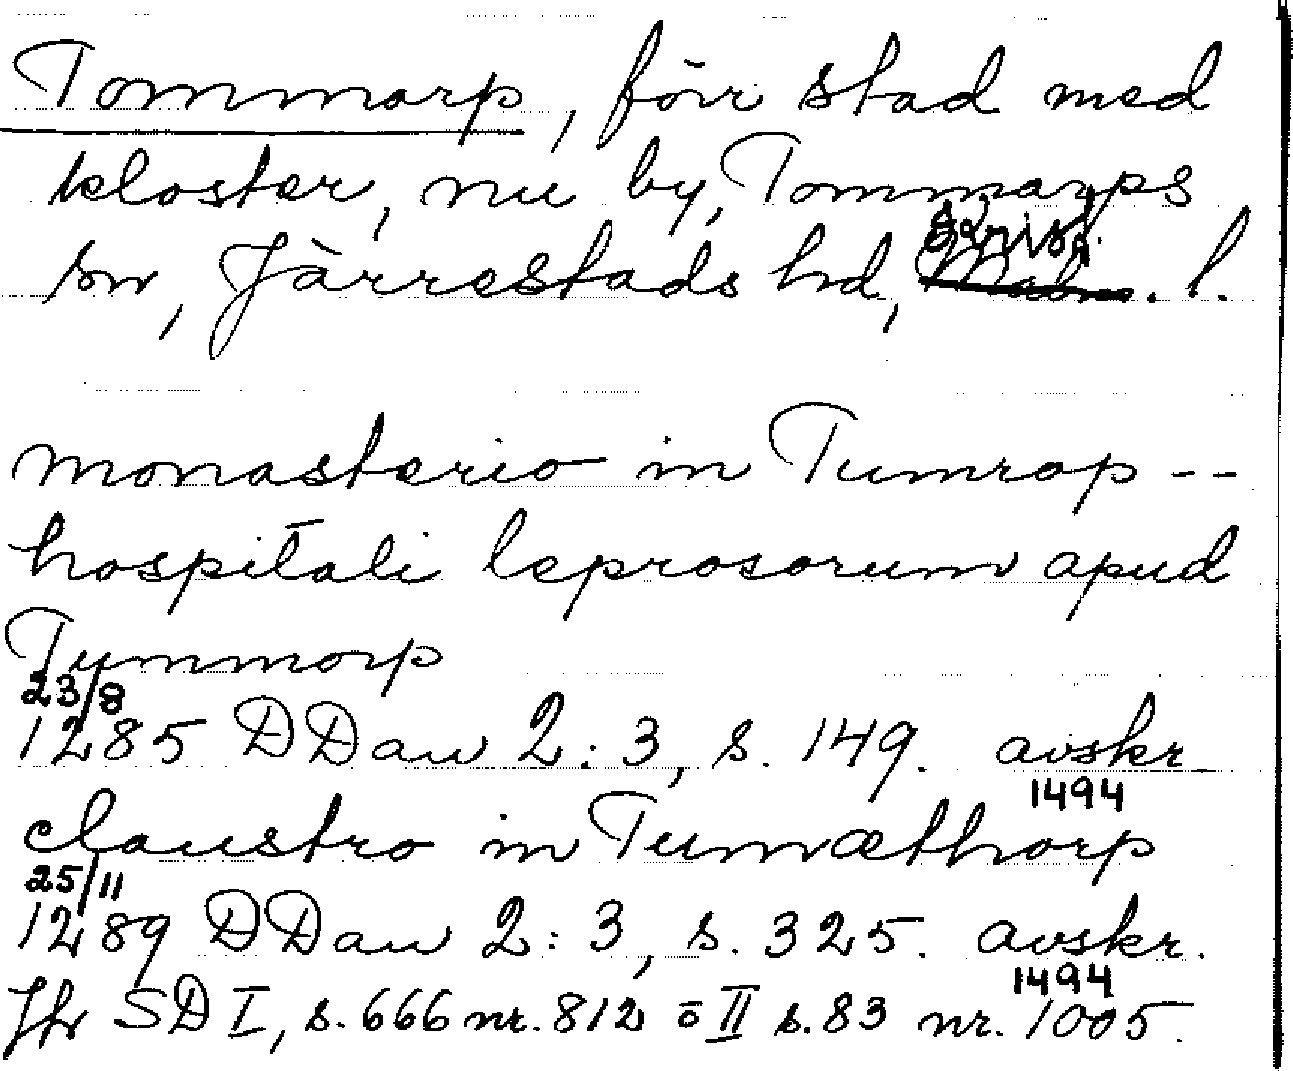 Tommarp, förr stad med
kloster, nu by, Tommarps
sn, Järrestads hd, l.
monasterio in Tumrop --
hospitali leprosorum apud
Tymmorp
23/8
1285 DDan 2:3, s. 149. avskr
1494
claustro in Tumæthorp
25/11
1289 DDan 2:3, s. 325. avskr.
1494
Jfr SD I, s. 666 nr. 812 o II s. 83 nr. 1005.